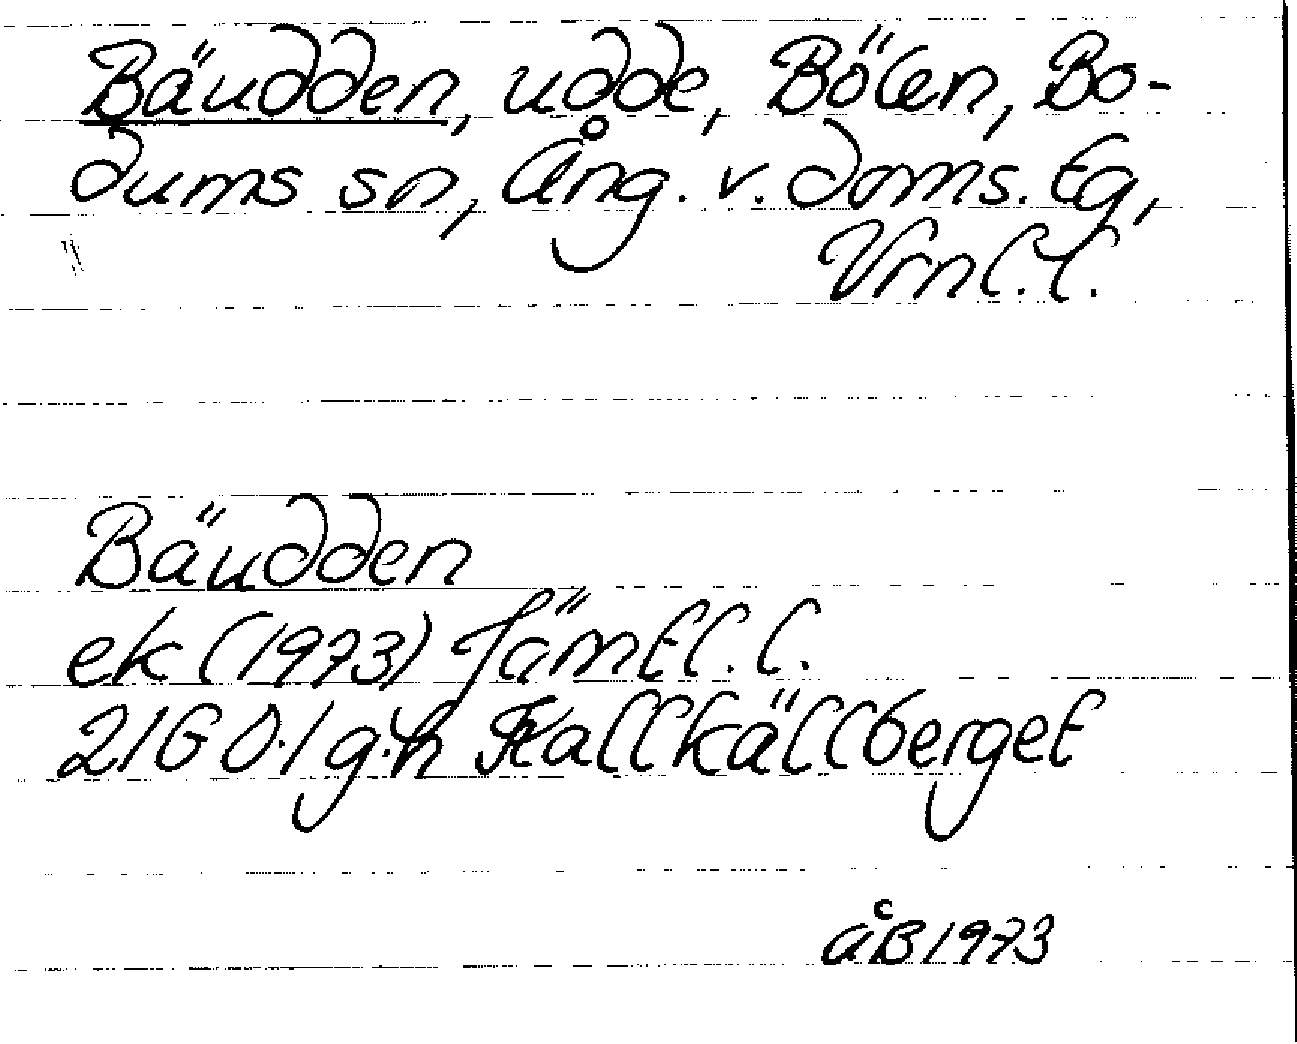 Bäudden, udde, Bölen, Bo-
dums sn, Ång. v. doms. tg,
Vrnl. l.
Bäudden
ek (1973) Jämtl. l.
21G 0-1 g-h Kallkällberget
åB 1973